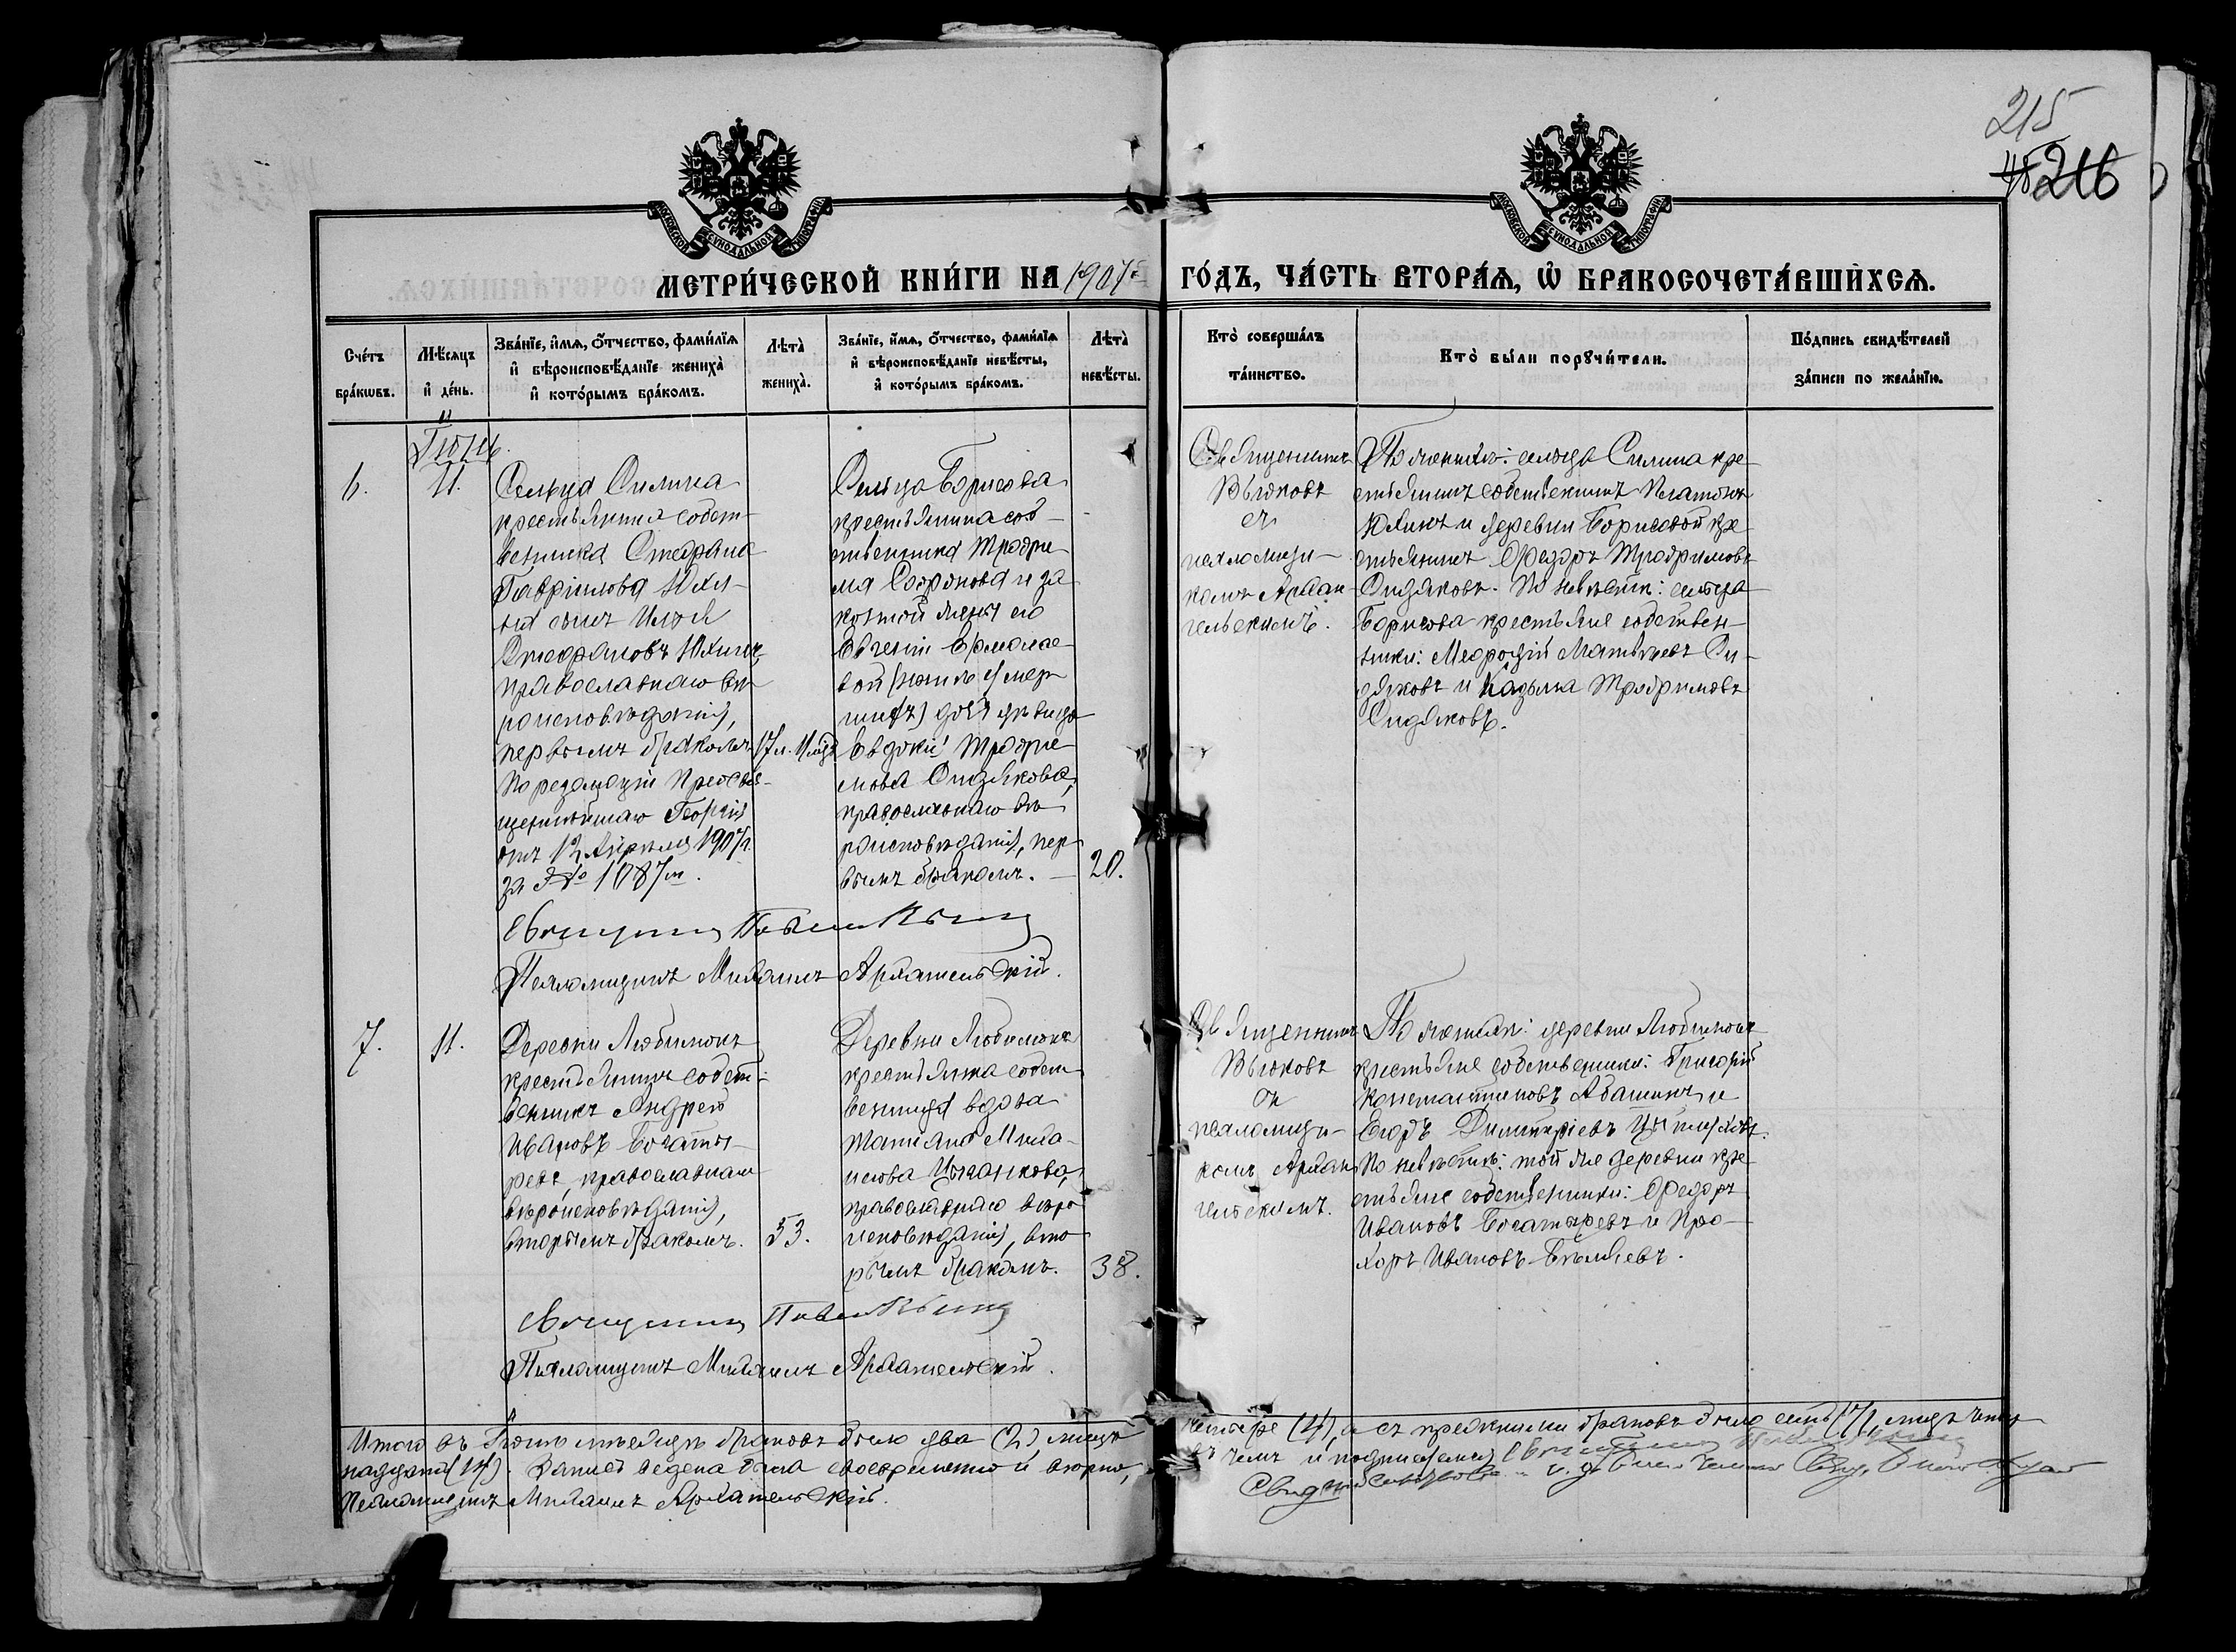 215
216
МОСКОВСКОЙ СѴНОДАЛЬНОЙ ТИПОГРАФІИ
МОСКОВСКОЙ СѴНОДАЛЬНОЙ ТИПОГРАФІИ
МЕТРИ́ЧЕСКОЙ КНИ́ГИ НА 1907й ГО́ДЪ, ЧА́СТЬ ВТОРА́Ѧ, Ѽ БРАКОСОЧЕТА́ВШИХСѦ.
Сче́тъ бра́кѡвъ.
Мѣ́сѧцъ и҆ де́нь.
Зва́нїе, и҆́мѧ, ѻ҆́тчество, фами́лїѧ
и҆ вѣроисповѣ́данїе жениха̀
и҆ кото́рымъ бра́комъ.
Лѣта̀ жениха̀.
Зва́нїе, и҆́мѧ, ѻ҆́тчество, фами́лїѧ
и҆ вѣроисповѣ́данїе невѣ́сты,
и҆ кото́рымъ бра́комъ.
Лѣта̀ невѣ́сты.
Кто̀ соверша́лъ
та́инство.
Кто̀ бы́ли порꙋчи́тели.
По́дпись свидѣ́телей
за́писи по жела́нїю.
Іюнь.
6.
11.
Сельца Силина
крестьянина собст-
венника Стефана
Гавриилова Юхи-
на сынъ Илья
Стефановъ Юхинъ,
православнаго вѣ-
роисповѣданія,
первымъ бракомъ
По резолюціи Преосвя-
щеннѣйшаго Георгія
отъ 12 Апрѣля 1907 г.
за № 1087м.
17 л.
Сельца Борисова
крестьянина соб-
ственника Трофи-
ма Софронова и за
конной жены его
Евгеніи Ермолае-
вой дочь дѣвица
Евдокія Трофи-
мова Сидякова,
православнаго вѣ-
роисповѣданія, пер-
вымъ бракомъ.
20.
Священникъ
Вьюковъ
съ
псаломщи-
комъ Архан-
гельскимъ.
По женихѣ: сельца Силина кре-
стьянинъ собственникъ Платонъ
Юхинъ и деревни Борисовой кре-
стьянинъ Ѳедоръ Трофимовъ
Сидяковъ. По невѣстѣ: сельца
Борисова крестьяне собствен-
ники: Меѳодій Матвѣевъ Си-
дяковъ и Козьма Трофимовъ
Сидяковъ.
Священникъ Павелъ Вьюковъ
Псаломщикъ Михаилъ Архангельскій.
7.
11.
Деревни Любимокъ
крестьянинъ собст-
венникъ Андрей
Ивановъ Богаты-
ревъ, православнаго
вѣроисповѣданія,
вторымъ бракомъ.
53.
Деревни Любимокъ
крестьянка собст-
венница вдова
Татіана Михаи-
лова Цыганкова,
православнаго вѣро
исповѣданія, вто-
рымъ бракомъ.
38.
Священникъ
Вьюковъ
съ
псаломщи-
комъ Архан
гельскимъ.
По женихѣ: деревни Любимокъ
крестьяне собственники: Григорій
Константиновъ Абашинъ и
Егоръ Димитріевъ
По невѣстѣ: той же деревни кре-
стьяне собственники: Ѳедоръ
Ивановъ Богатыревъ и Про-
хоръ Ивановъ Бѣляевъ.
Священникъ Павелъ Вьюковъ
Псаломщикъ Михаилъ Архангельскій.
Итого въ Іюнѣ мѣсяцѣ браковъ было два (2), лицъ четыре (4), а съ прежними браковъ было семь (7), лицъ четыр
надцать (14). Запись ведена была своевременно и вѣрно, въ чемъ и подписуемся Священникъ Павелъ Вьюковъ
Псаломщикъ Михаилъ Архангельскій.